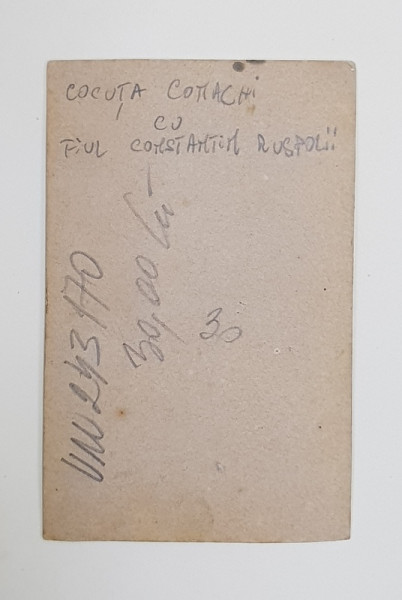 COCUȚA CONACHi
CU
FiUL CONSTANTIN RUSPOLii
30,00 lei
30
243170